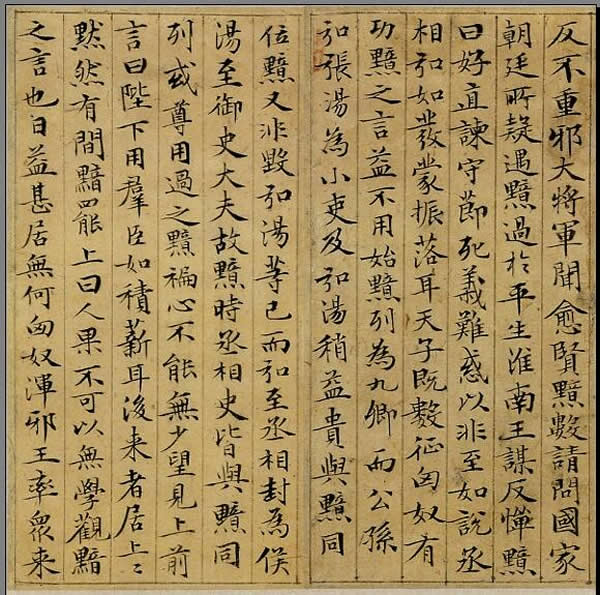 反不重邪大將軍聞愈賢黯數請問國家
朝廷所疑遇黯過於平生淮南王謀反憚黯
曰好直諫守節死義難惑以非至如說丞
相弘如發蒙振落耳天子既數征匈奴有
功黯之言益不用始黯列為九卿而公孫
弘張湯為小吏及弘湯稍益貴與黯同
位黯又非毀弘湯等已而弘至丞相封為侯
湯至御史大夫故黯時丞相史皆與黯同
列或尊用過之黯褊心不能無少望見上前
言曰陛下用羣臣如積薪耳後来者居上〻
黙然有間黯罷上曰人果不可以無學觀黯
之言也日益甚居無何匈奴渾邪王率衆来